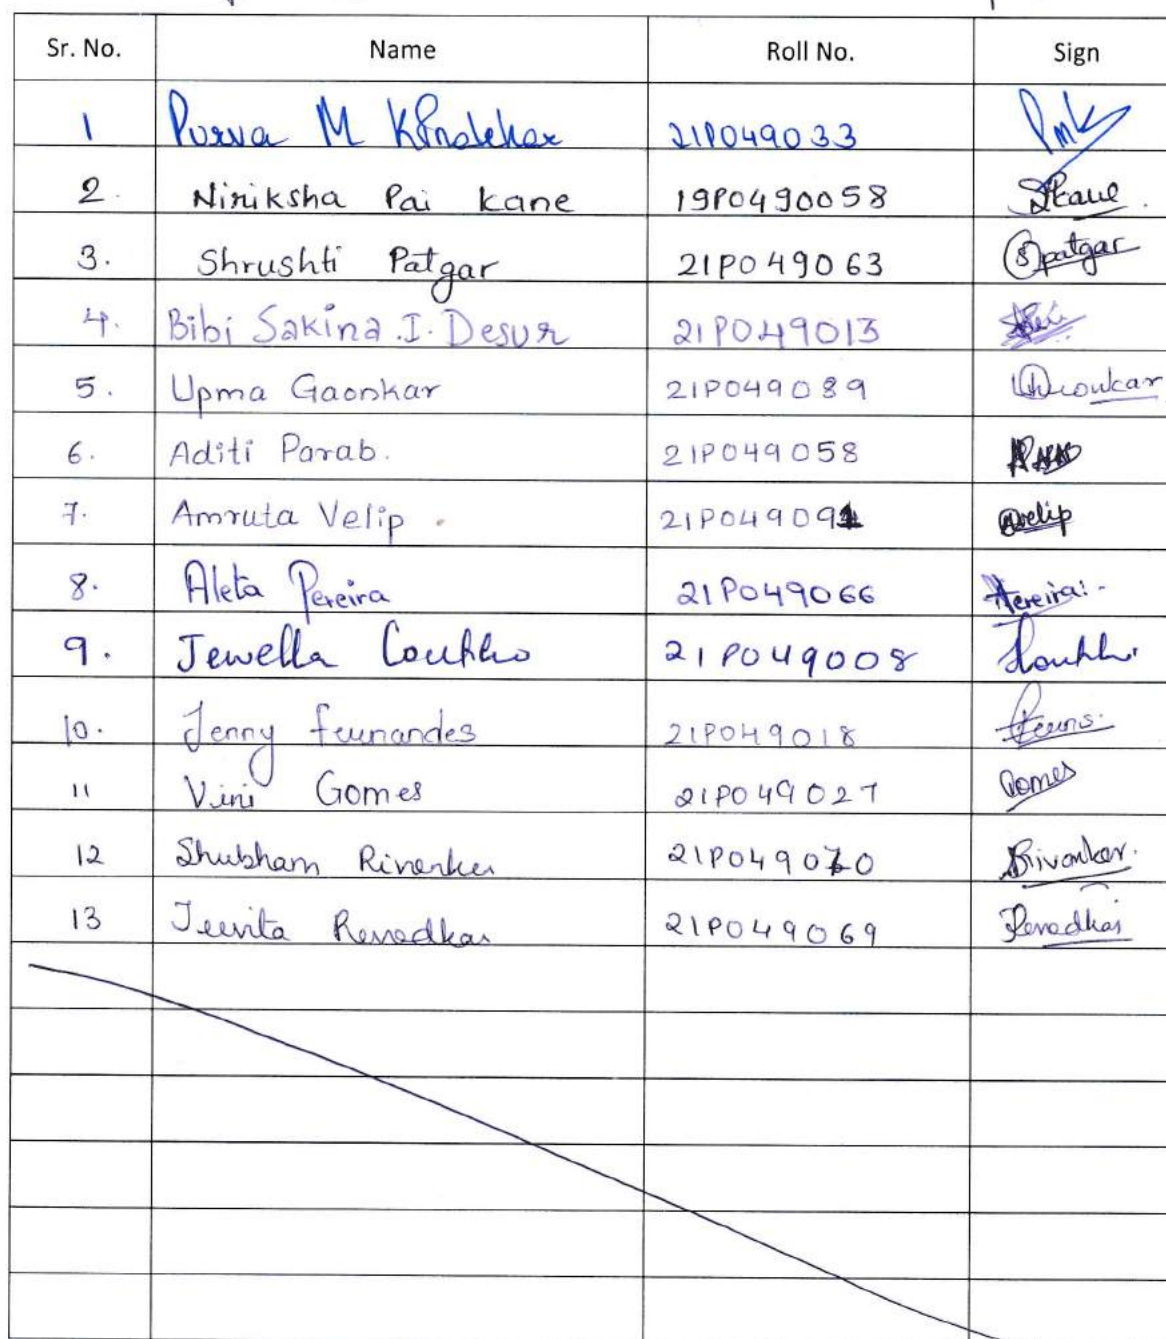 Sr. No. Name Roll No. Sign
1 Purva M 21P049033 Pmk
2. Niriksha Pai kane 19P0490058 Kane.
3. Shrushti Patgar 21P049063 Spatgar
4. Bibi Sakina.I.Desur 21P049013
5. Upma Gaonkar 21P049089
6. Aditi Parab. 21P049058
7. Amruta Velip. 21P049091 Avelip
8. Aleta Pereira 21P049066 Apereira:-
9. Jewella Coutho 21P049008
10. Jenny Fernandes 21P049018
11 Vini Gomes 21P049027 Gomes
12 Shubham Rivankar 21P049070 Rivankar.
13 Jeevita Revadkar 21P049069 Revadkar